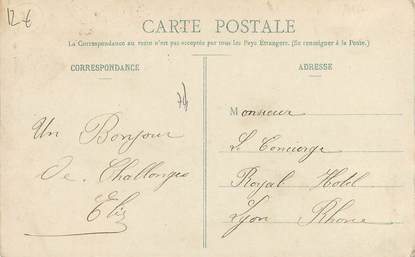 12€
CARTE POSTALE
La Correspondance au recto n'est pas acceptée par tous les Pays Etrangers. (Se renseigner à la Poste.)
CORRESPONDANCE
ADRESSE
74
Un Bonjour
de Challonges
Elis
Monsieur
Le Concierge
Royal Hotel
Lyon Rhone